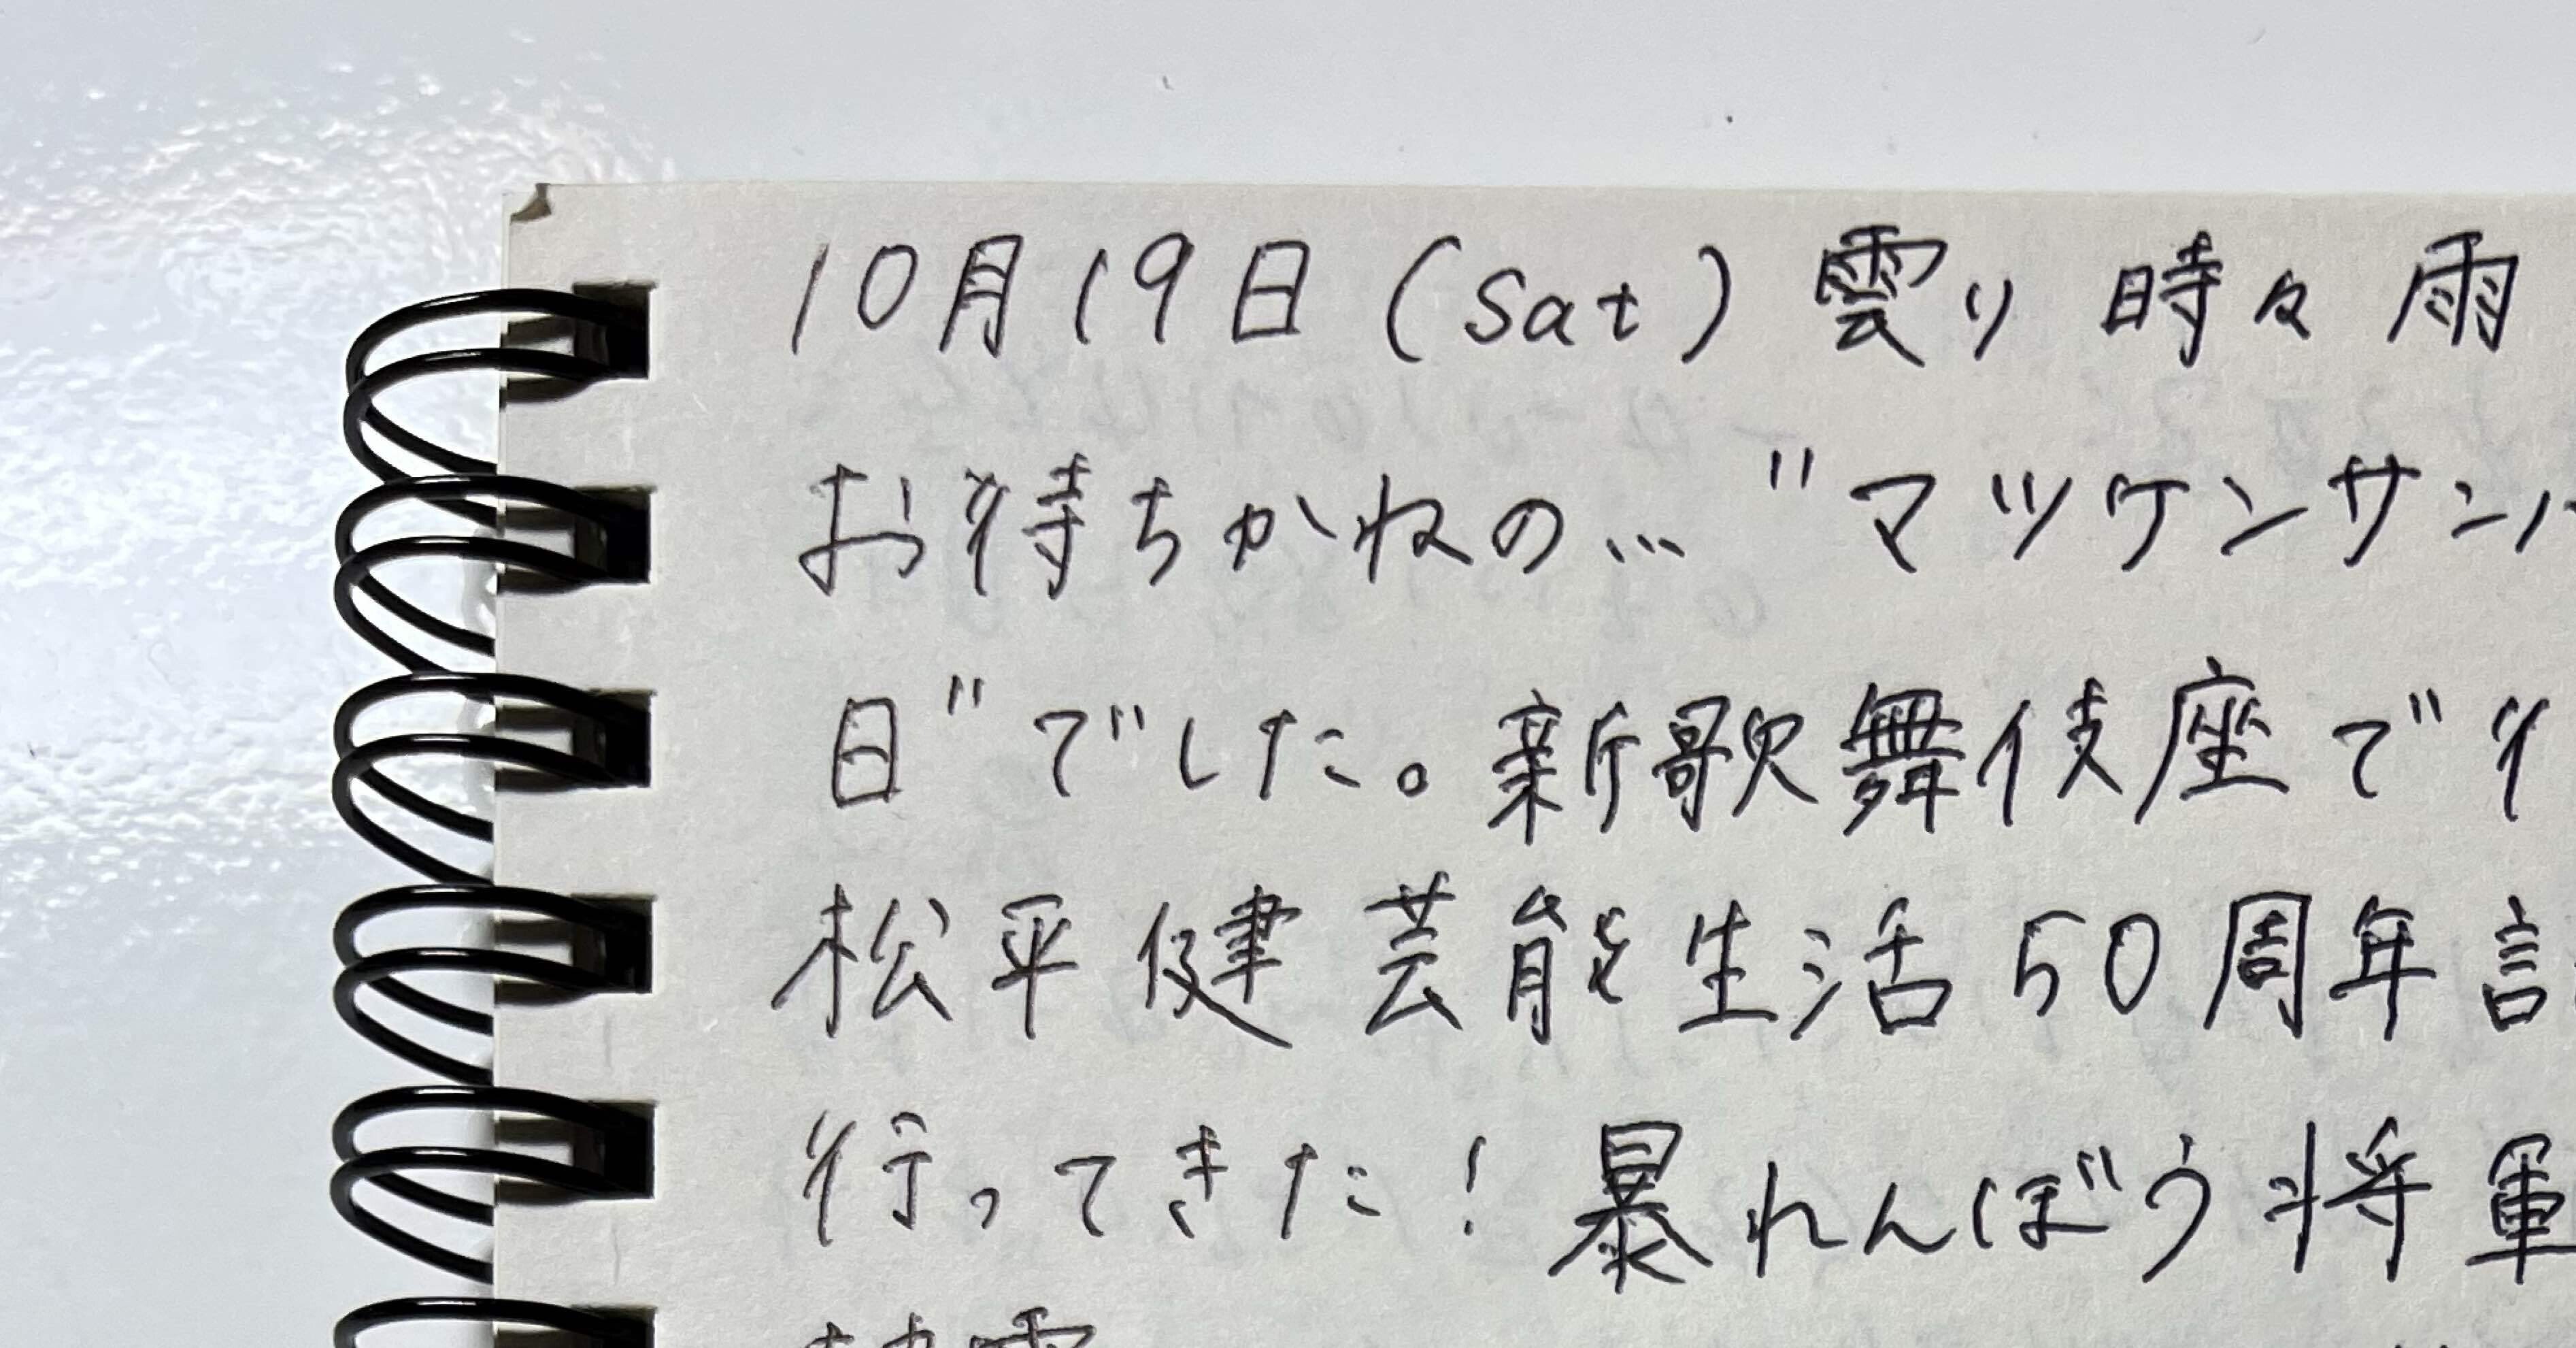 10月19日(Sat) 雲り 時々雨
お待ちかねの…"マツケンサン
日"でした。新歌舞伎座で
松平健 芸能生活50周年
行ってきた!暴れんぼう将軍